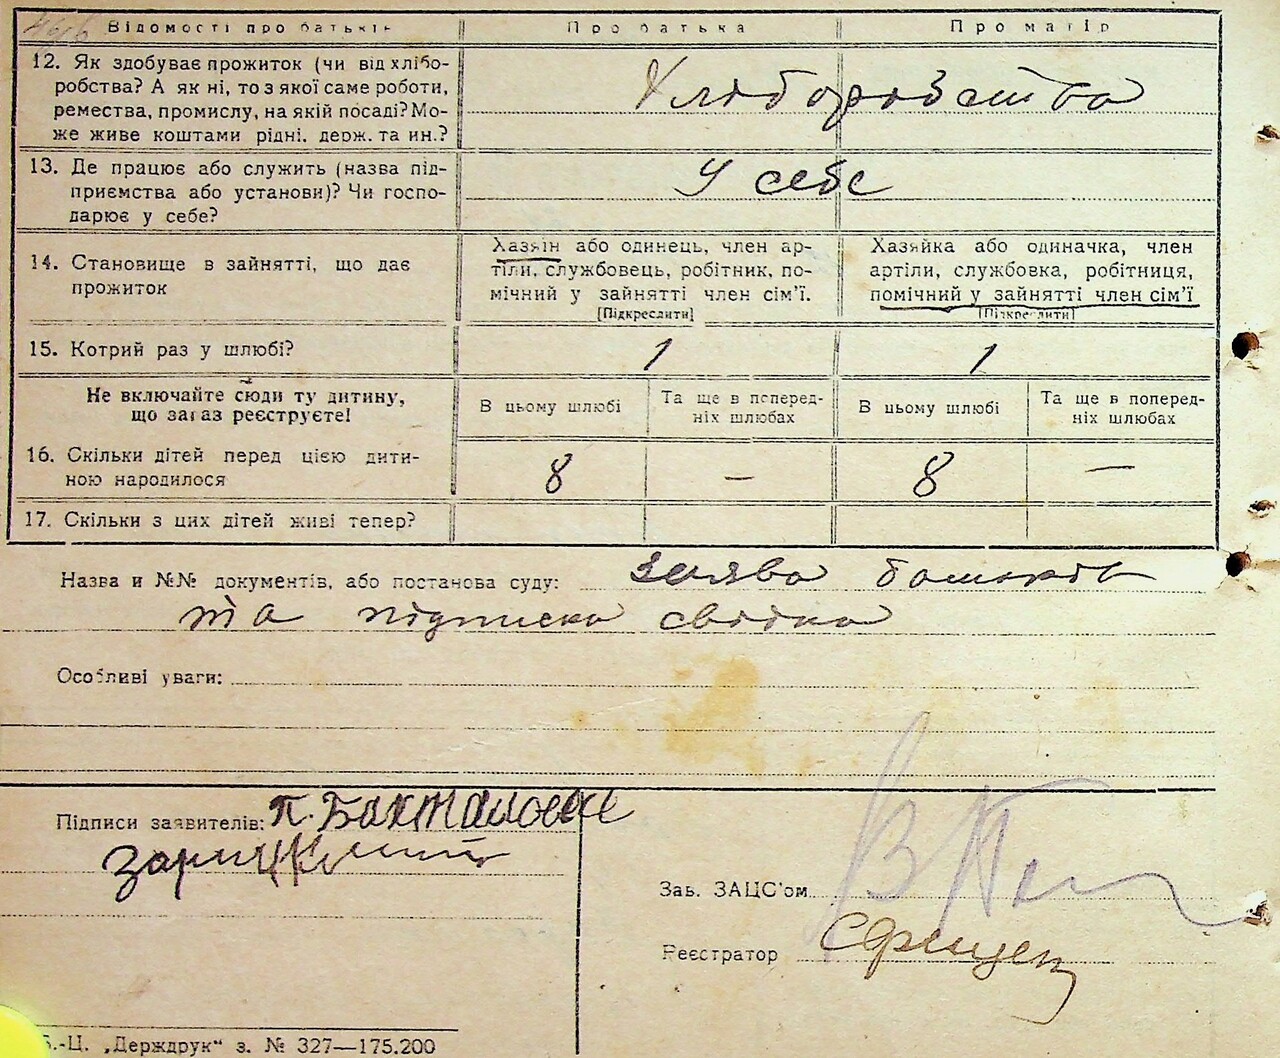 Відомості про батьків
Про батька
Про матір
12. Як здобуває прожиток (чи від хлібо-
робства? А як ні, то з якої саме роботи,
ремества, промислу, на якій посаді? Мо-
же живе коштами рідні, держ. та ин.?
Хліборобства
13. Де працює або служить (назва під-
приємства або установи)? Чи госпо-
дарює у себе?
У себе
14. Становище в зайнятті, що дає
прожиток
Хазяїн або одинець, член ар-
тіли, службовець, робітник, по-
мічний у зайнятті член сім'ї.
[Підкреслити]
Хазяйка або одиначка, член
артіли, службовка, робітниця,
помічний у зайнятті член сім'ї
[Підкреслити]
15. Котрий раз у шлюбі?
1
1
Не включайте сюди ту дитину,
що зараз реєструєте!
В цьому шлюбі
Та ще в поперед-
ніх шлюбах
В цьому шлюбі
Та ще в поперед-
ніх шлюбах
16. Скільки дітей перед цією дити-
ною народилося
8
—
8
—
17. Скільки з цих дітей живі тепер?
Назва и №№ документів, або постанова суду: заява батьків
та підписка свідка
Особливі уваги:
Підписи заявителів: П.
Зав. ЗАЦС'ом
Реєстратор
Б.-Ц. „Держдрук“ з. № 327—175.200